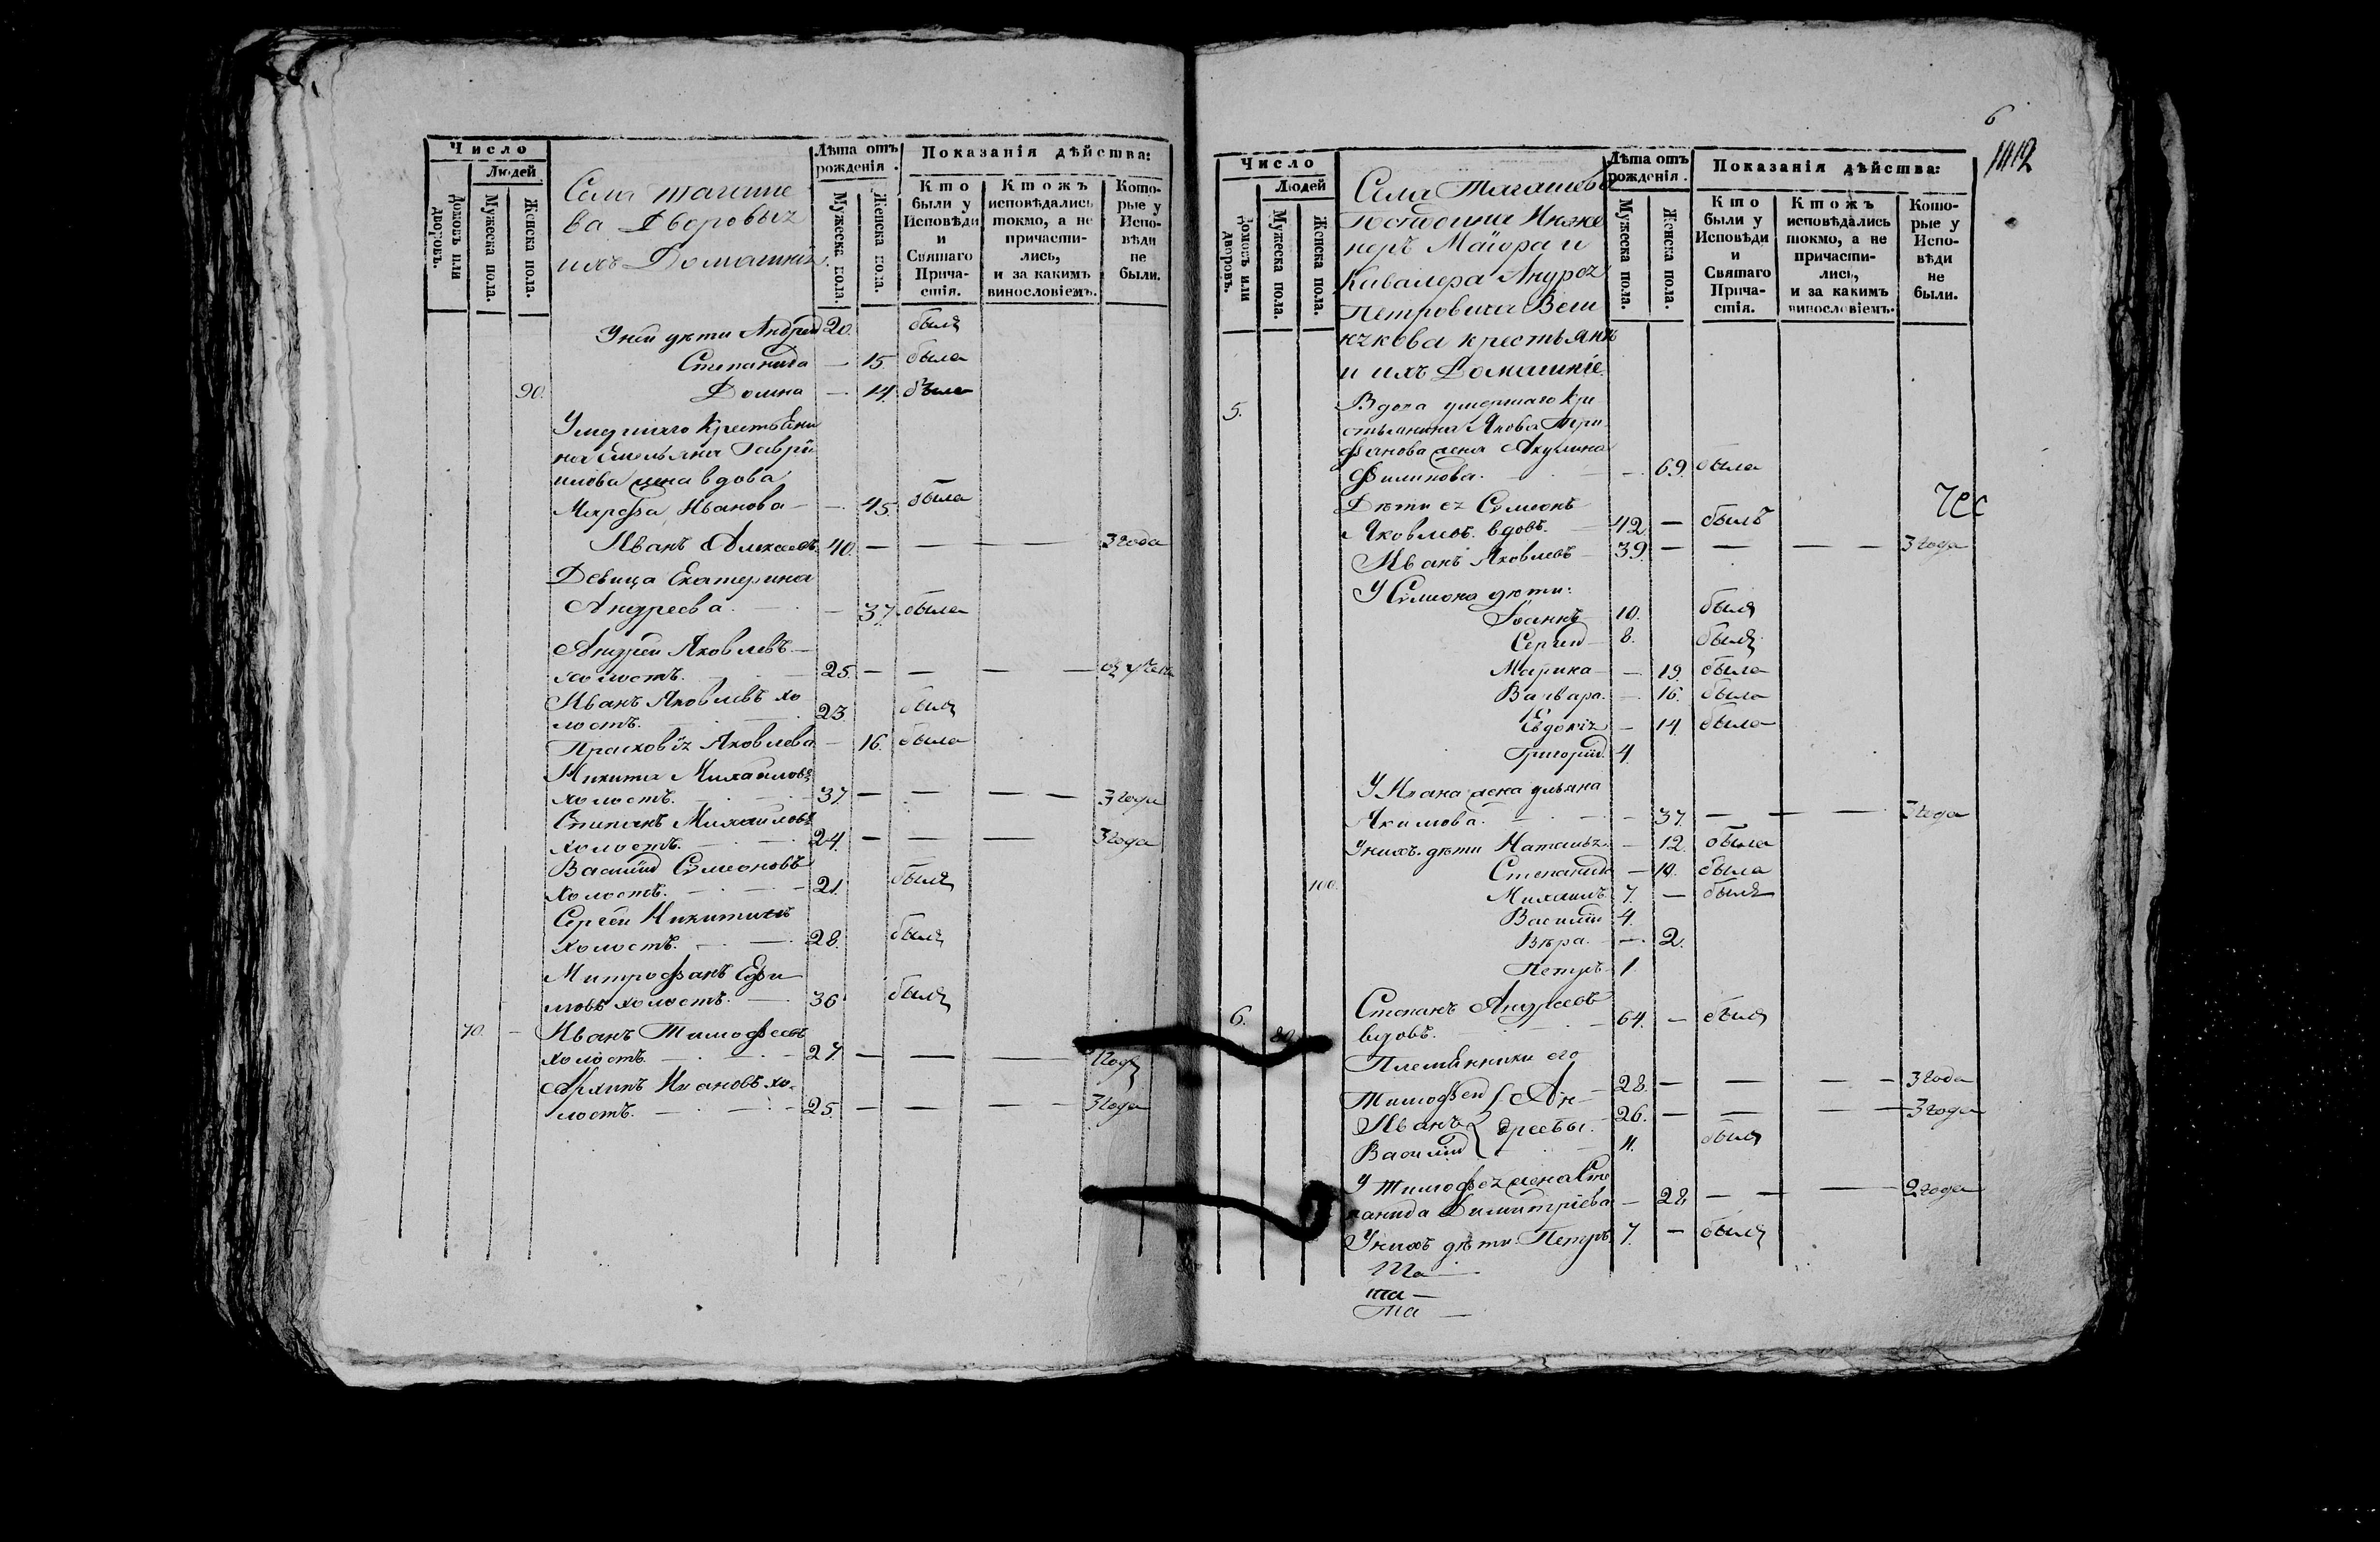 Число
Людей
Домовъ или дворовъ.
Мужеска пола.
Женска пола.
Села Тагаше
ва Дворовыя
ихъ Домашнія.
Лѣта отъ рожденія.
Мужеска пола.
Женска пола.
Показанія дѣйства:
Кто были у Исповѣди и Святаго Причастія.
Ктожъ исповѣдались токмо, а не причастились, и за какимъ винословіемъ.
Которые у Исповѣди не были.
У ней дѣти Андрей 20. былъ
Степанида — 15. была
90. Домна — 14. была
Умершаго Крестьяни
на Емельяна Гаври
лова жена вдова
Марѳа Иванова — — 45. была
Иванъ Алексеевъ. 40. — — — 3 года
Девица Екатерина
Андреева. — 37. была
Андрей Яковлевъ —
холостъ. 25. — — —
Иванъ Яковлевъ хо
лостъ. 23. былъ
Прасковія Яковлева — 16. была
Никита Михаиловъ
холостъ. 37. — — — — 3 года
Степанъ Михаиловъ
холостъ. 24. — — — 3 года
Василій Симеоновъ
холостъ. 21. былъ
Сергей Никитинъ
холостъ. 28. былъ
Митрофанъ Ефи
мовъ холостъ. — 36 былъ
70. — Иванъ Тимофеевъ
холостъ — 27 — — — 1 годъ
Архипъ Ивановъ хо-
лостъ. — 25. — — — — 3 года
6
1412
Число
Людей
Домовъ или дворовъ.
Мужеска пола.
Женска пола.
Села Тагашева
Госпоина Инже
неръ Маіора и
Кавалера Андрея
Петровича Вель
яшева крестьяня
и ихъ Домашніе.
Лѣта отъ рожденія.
Мужеска пола.
Женска пола.
Показанія дѣйства:
Кто были у Исповѣди и Святаго Причастія.
Ктожъ исповѣдались токмо, а не причастились, и за какимъ винословіемъ.
Которые у Исповѣди не были.
5. Вдова умершаго Кре
стьянина Якова Три
фанова жена Акулина
Филипова. — 69. была
Дѣти ея Симеонъ
Яковлевъ. вдовъ. — 42. — былъ
Иванъ Яковлевъ — 39. — — — — 3 года
У Симеона дѣти:
Іоаннъ 10. былъ
Сергий — 8. былъ
Марика — — 19. была
Варвара. — 16. была
Евдокія — 14 была
Григорій. 4.
У Ивана жена Ульяна
Якимова. — — 37. — — — 3 года
У нихъ дѣти Наталья. — 12. была
Степанида — 10. была
100. Михаилъ 7. — былъ
Василій 4.
Вѣра. — 2.
Петръ 1
6. 80. Степанъ Андреевъ
вдовъ. — 64. — былъ
Племянники его
Тимофей Ан — 28. — — — — 3 года
Иванъ дреевы. — 26. — — — 3 года
Василій 11. былъ
У Тимофея жена Сте
панида Димитріева — 28. — — — 2 года
У нихъ дѣти Петръ. 7. — былъ
Та —
та —
Та —